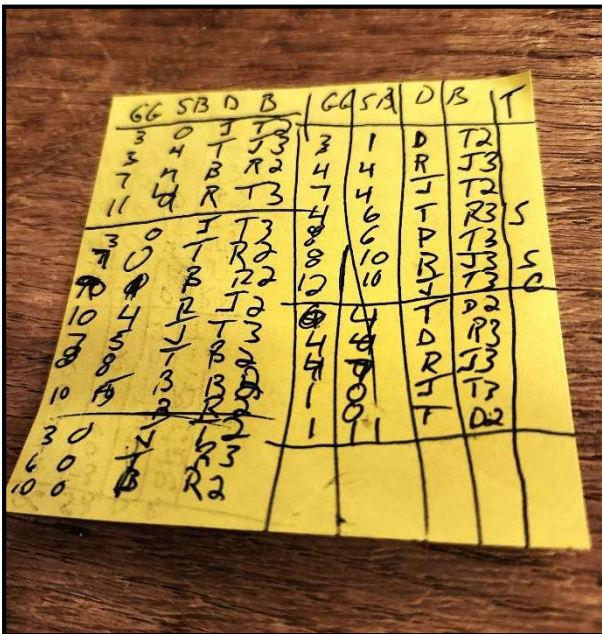 GG SB D B
3 0 J T2
3 4 T J3
7 4 B R2
11 4 R T3
3 0 J T3
7 0 T R2
B R2
10 4 R J2
5 J T3
8 8 T B2
10 B B
3 0 J 2
6 0 T R3
10 0 B R2
GG SB D B T
3 1 D T2
4 4 R J3
7 4 J T2
4 6 T R3 S
8 6 D T3
8 10 R J3 S
12 10 J T3 C
4 T D2
4 4 D R3
4 R J3
1 0 J T3
1 T D2